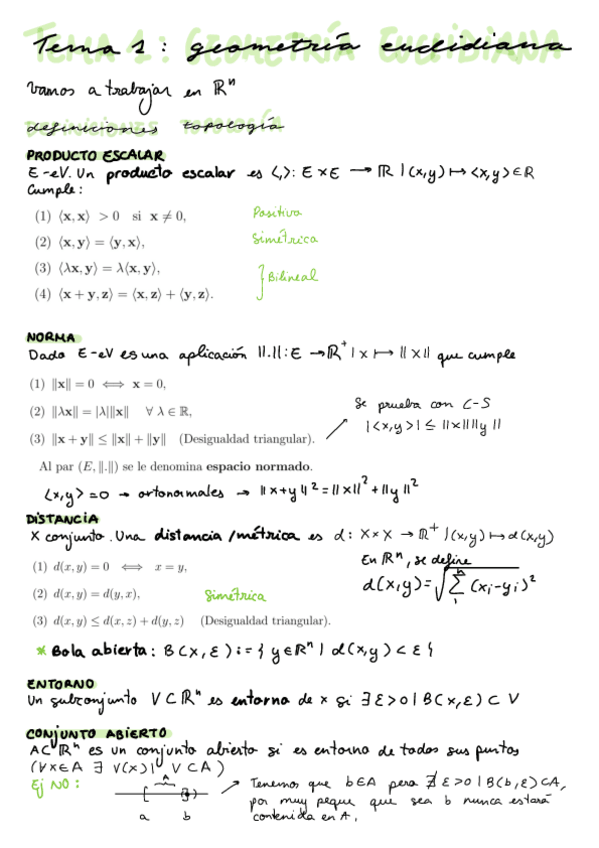 Tema 1: geometría euclidiana
Vamos a trabajar en ℝⁿ
definiciones topología
PRODUCTO ESCALAR
E-eV. Un producto escalar es <,>: E×E → ℝ | (x,y) ↦ <x,y> ∈ ℝ
Cumple:
(1) ⟨x, x⟩ > 0 si x ≠ 0, Positiva
(2) ⟨x, y⟩ = ⟨y, x⟩, Simétrica
(3) ⟨λx, y⟩ = λ⟨x, y⟩,
} Bilineal
(4) ⟨x + y, z⟩ = ⟨x, z⟩ + ⟨y, z⟩.
NORMA
Dado E-eV es una aplicación ||.||: E → ℝ⁺ | x ↦ ||x|| que cumple
(1) ‖x‖ = 0 ⟺ x = 0,
(2) ‖λx‖ = |λ|‖x‖ ∀ λ ∈ ℝ,
(3) ‖x + y‖ ≤ ‖x‖ + ‖y‖ (Desigualdad triangular).
Se prueba con C-S
|<x,y>| ≤ ||x|| ||y||
Al par (E, ‖.‖) se le denomina espacio normado.
<x,y> = 0 → ortonormales → ||x+y||² = ||x||² + ||y||²
DISTANCIA
X conjunto. Una distancia/métrica es d: X×X → ℝ⁺ | (x,y) ↦ d(x,y)
(1) d(x, y) = 0 ⟺ x = y,
(2) d(x, y) = d(y, x), Simétrica
(3) d(x, y) ≤ d(x, z) + d(y, z) (Desigualdad triangular).
En ℝⁿ, se define
d(x,y) = √∑₁ⁿ (xᵢ-yᵢ)²
* Bola abierta: B(x,ε) := {y ∈ ℝⁿ | d(x,y) < ε}
ENTORNO
Un subconjunto V ⊂ ℝⁿ es entorno de x si ∃ ε>0 | B(x,ε) ⊂ V
CONJUNTO ABIERTO
A ⊂ ℝⁿ es un conjunto abierto si es entorno de todos sus puntos
(∀x∈A ∃ V(x) | V ⊂ A)
Ej NO:
A
a b
Tenemos que b∈A pero ∄ ε>0 | B(b,ε) ⊂ A,
por muy peque que sea b nunca estará
contenida en A.